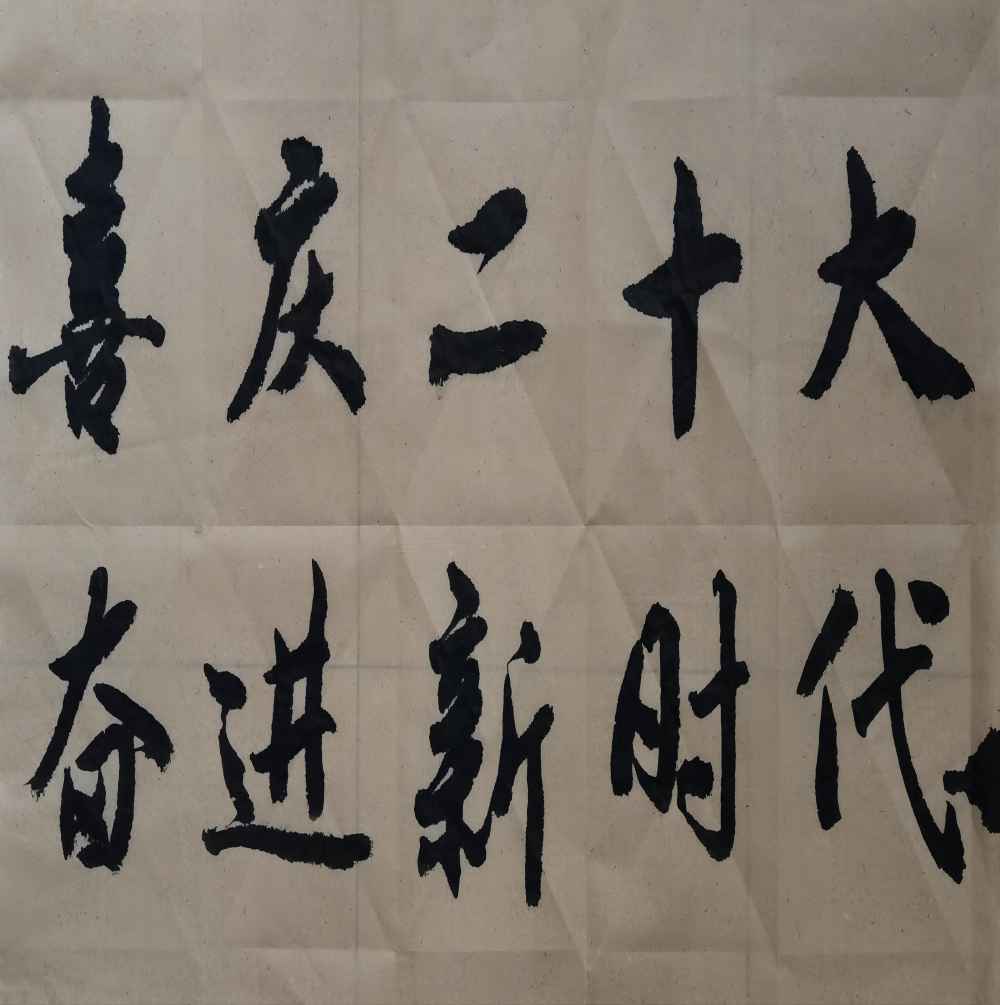 喜庆二十大
奋进新时代